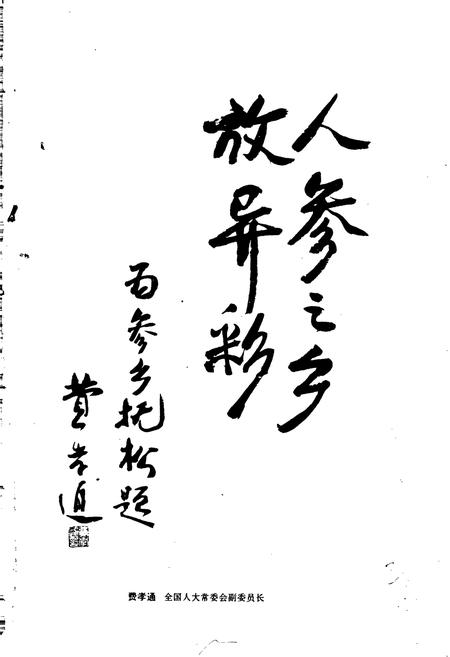 人参之乡
放异彩
为参乡抚松题
费孝通
费孝通 全国人大常委会副委员长